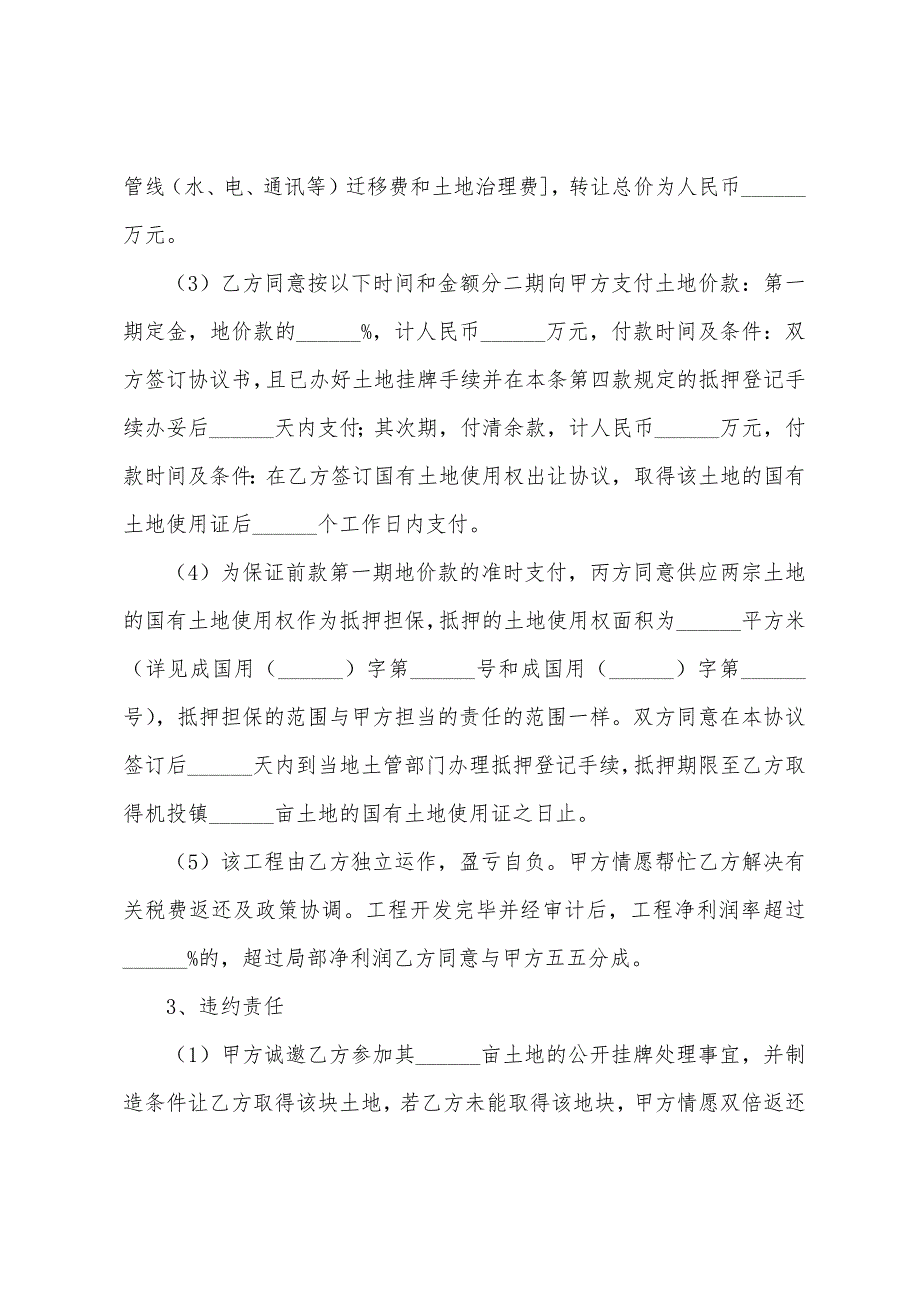 管线（水、电、通讯等）迁移费和土地治理费]，转让总价为人民币______
万元。
（3）乙方同意按以下时间和金额分二期向甲方支付土地价款：第一
期定金，地价款的______%，计人民币______万元，付款时间及条件：双
方签订协议书，且已办好土地挂牌手续并在本条第四款规定的抵押登记手
续办妥后______天内支付；其次期，付清余款，计人民币______万元，付
款时间及条件：在乙方签订国有土地使用权出让协议，取得该土地的国有
土地使用证后______个工作日内支付。
（4）为保证前款第一期地价款的准时支付，丙方同意供应两宗土地
的国有土地使用权作为抵押担保，抵押的土地使用权面积为______平方米
（详见成国用（______）字第______号和成国用（______）字第______
号），抵押担保的范围与甲方担当的责任的范围一样。双方同意在本协议
签订后______天内到当地土管部门办理抵押登记手续，抵押期限至乙方取
得机投镇______亩土地的国有土地使用证之日止。
（5）该工程由乙方独立运作，盈亏自负。甲方情愿帮忙乙方解决有
关税费返还及政策协调。工程开发完毕并经审计后，工程净利润率超过
______%的，超过局部净利润乙方同意与甲方五五分成。
3、违约责任
（1）甲方诚邀乙方参加其______亩土地的公开挂牌处理事宜，并制
造条件让乙方取得该块土地，若乙方未能取得该地块，甲方情愿双倍返还